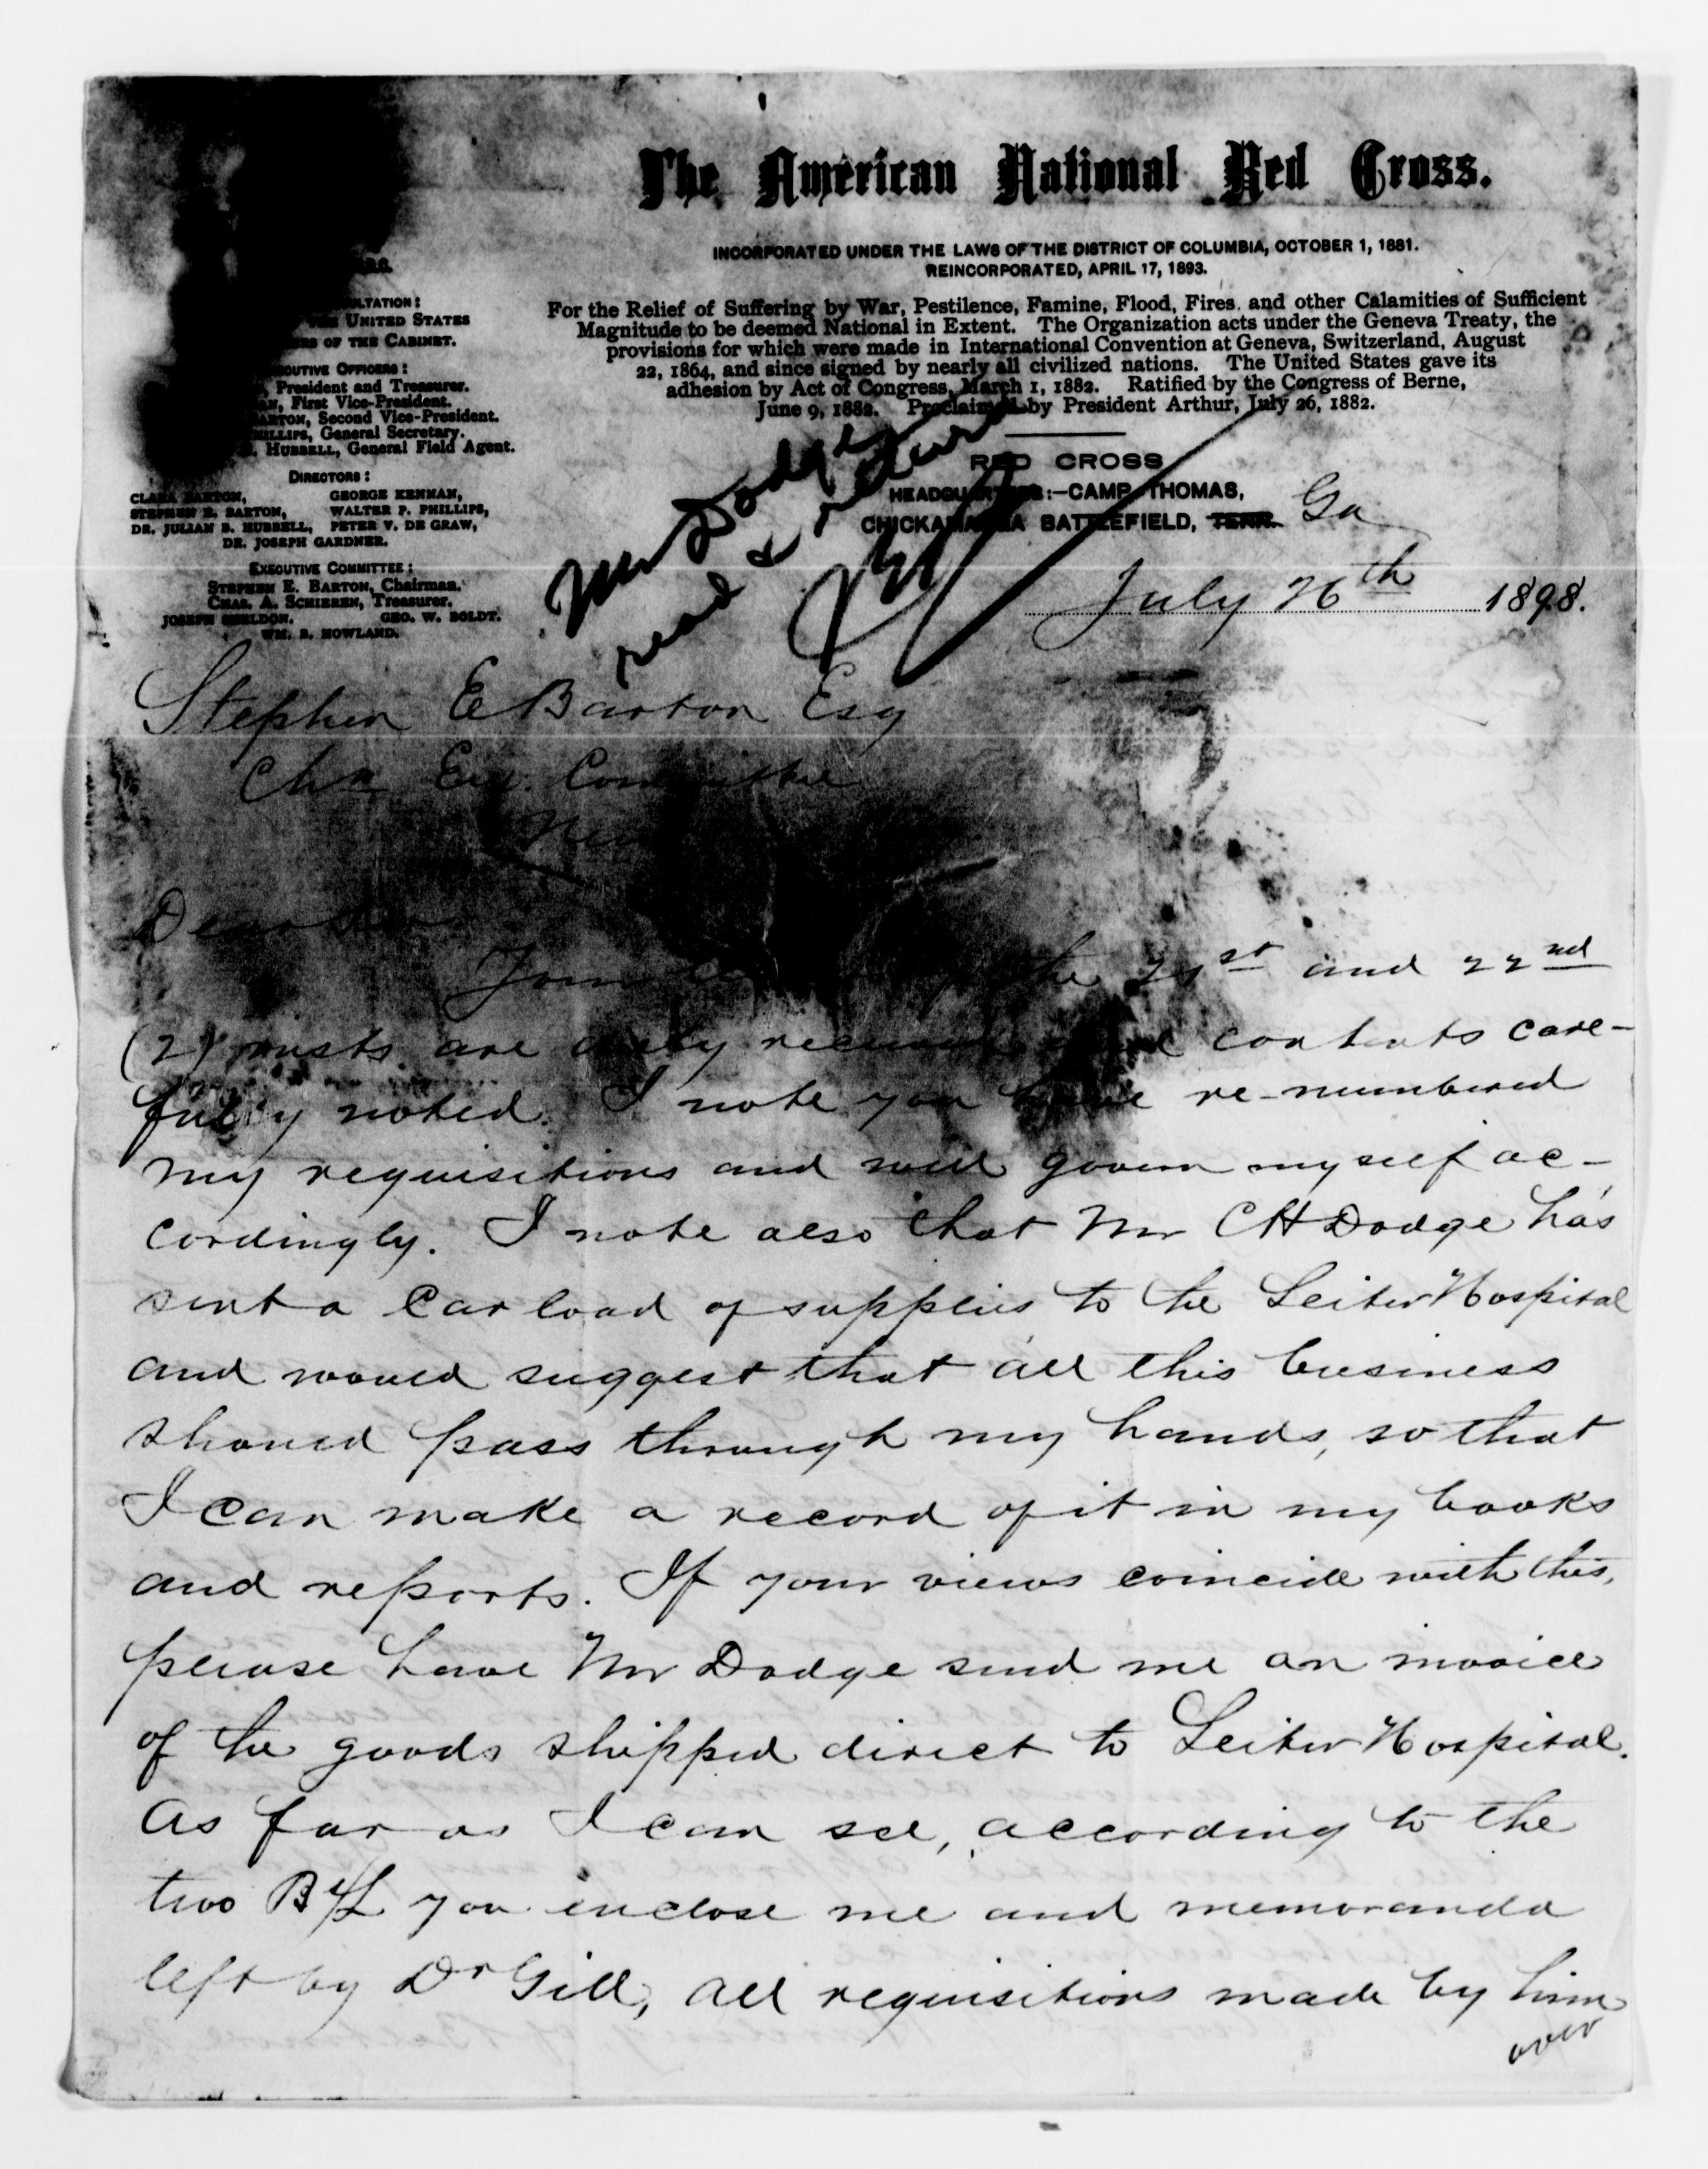 The American National Red Cross.
INCORPORATED UNDER THE LAWS OF THE DISTRICT OF COLUMBIA, OCTOBER 1, 1881.
REINCORPORATED, APRIL 17, 1893.
For the Relief of Suffering by War, Pestilence, Famine, Flood, Fires. and other Calamities of Sufficient
Magnitude to be deemed National in Extent. The Organization acts under the Geneva Treaty, the
provisions for which were made in International Convention at Geneva, Switzerland, August
22, 1864, and since signed by nearly all civilized nations. The United States gave its
adhesion by Act of Congress, March 1, 1882. Ratified by the Congress of Berne,
June 9, 1882. Proclaimed by President Arthur, July 26, 1882.
UNITED STATES
OF THE CABINET.
OFFICERS:
President and Treasurer.
First Vice-President.
BARTON, Second Vice-President.
PHILLIPS, General Secretary.
HUBBELL, General Field Agent.
DIRECTORS:
CLARA BARTON, GEORGE KENNAN,
STEPHEN E. BARTON, WALTER P. PHILLIPS,
DR. JULIAN B. HUBBELL, PETER V. DE GRAW,
DR. JOSEPH GARDNER.
EXECUTIVE COMMITTEE:
STEPHEN E. BARTON, Chairman.
CHAS. A. SCHIEREN, Treasurer.
JOSEPH SHELDON. GEO. W. BOLDT.
WM. B. HOWLAND.
RED CROSS
HEADQUARTERS:—CAMP THOMAS,
CHICKAMAUGA BATTLEFIELD, TENN. Ga
July 26th 1898.
Mr Dodge
read & return
Stephen E Barton Esq
Chn Ex. Committee
New
Dear Sir
Your of the 21st and 22nd
(2) insts are duly received and contents care-
fully noted. I note you have re-numbered
my requisitions and will govern myself ac-
cordingly. I note also that Mr C H Dodge has
sent a car load of supplies to the Leiter Hospital
and would suggest that all this business
should pass through my hands, so that
I can make a record of it in my books
and reports. If your views coincide with this,
please have Mr Dodge send me an invoice
of the goods shipped direct to Leiter Hospital.
As far as I can see, according to the
two B/L you enclose me and memoranda
left by Dr Gill, all requisitions made by him
over